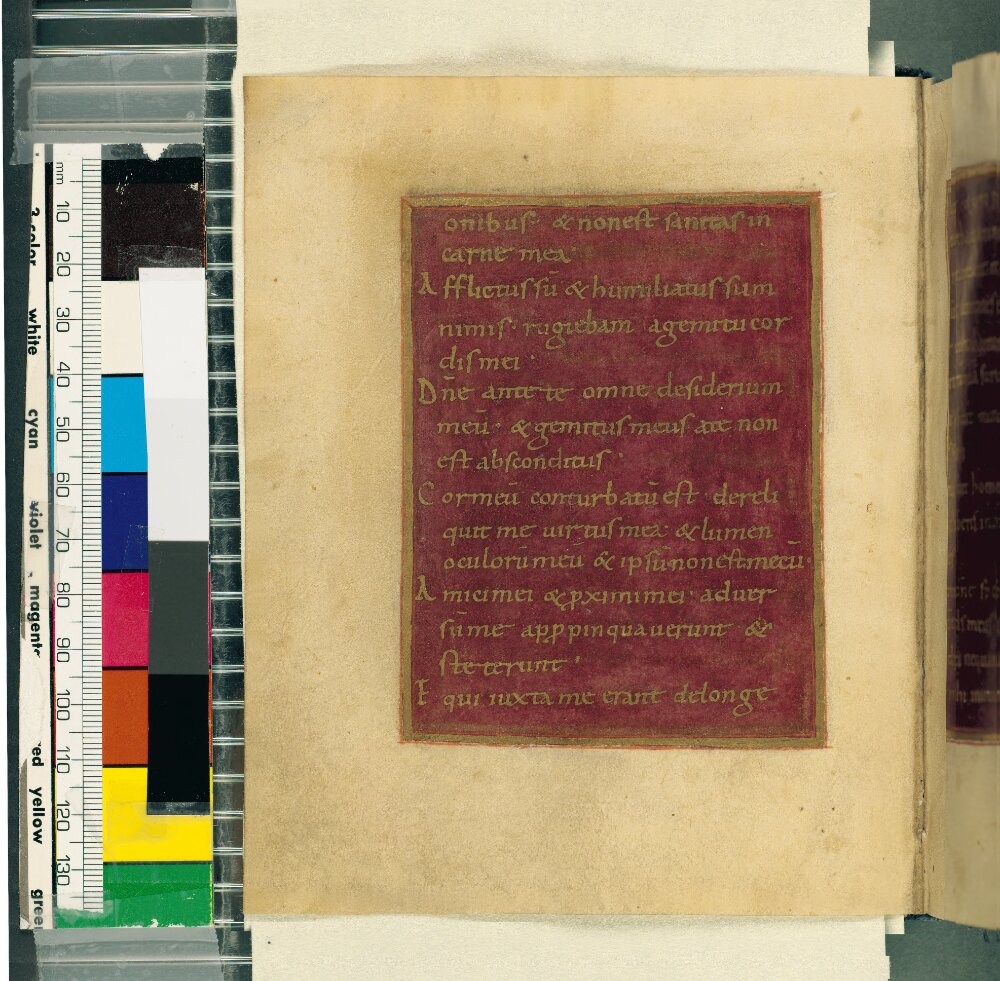 onibus· & nonest sanitas in
carne mea·
Afflictussū & humiliatussum
nimis· rugiebam agemitu cor
dis mei·
Dn̄e ante te omne desiderium
meū· & gemitus meus ate non
est absconditus·
Cormeū conturbatū est dereli
quit me uirtus mea· & lumen
oculorū meū & ipsū non est mecū·
Amici mei & pximi mei· aduer
sū me appinquauerunt &
steterunt·
E qui iuxta me erant delonge
mm 10 20 30 40 50 60 70 80 90 100 110 120 130
white cyan violet magent yellow gree